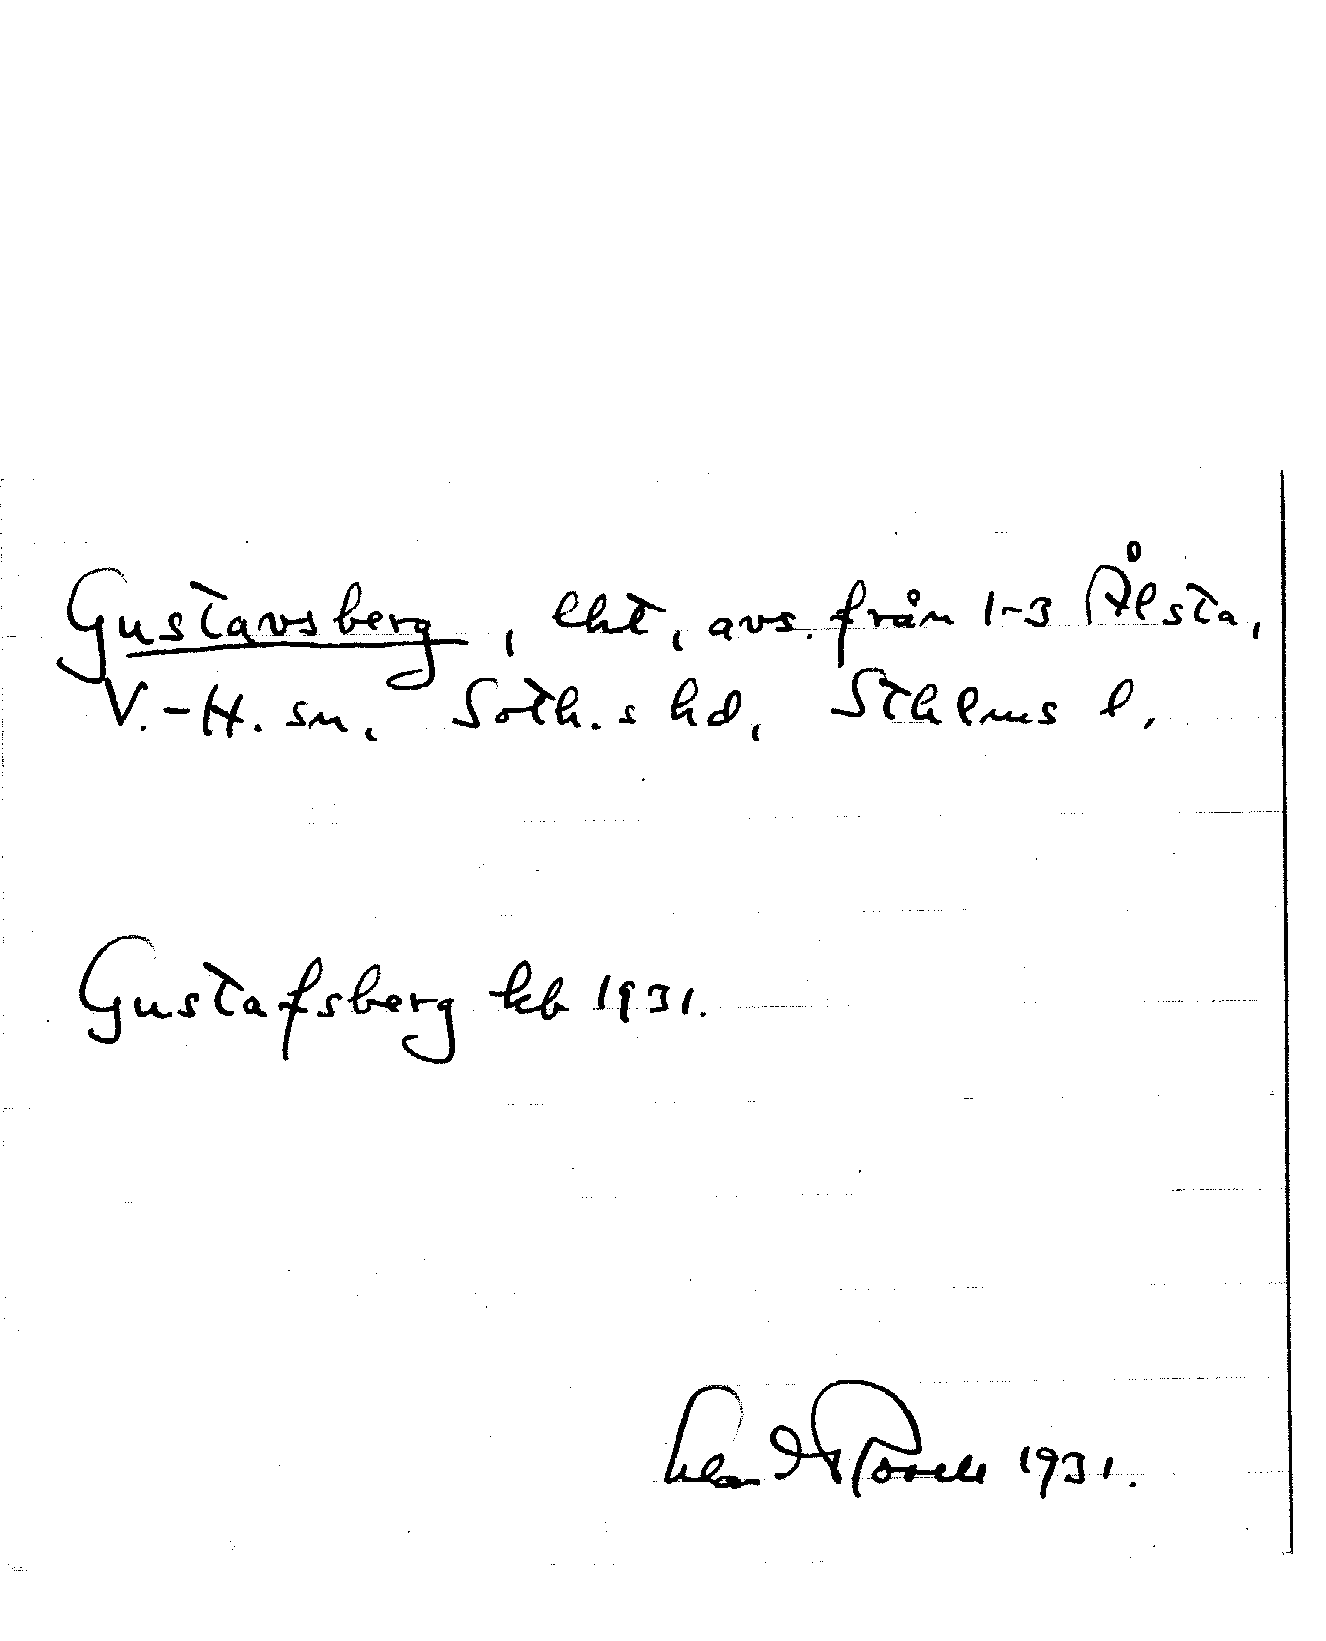 Gustavsberg, lht, avs. från 1-3 Ålsta,
V.-H. sn, Soth.s hd, Sthlms l.
Gustafsberg kb 1931.
1931.